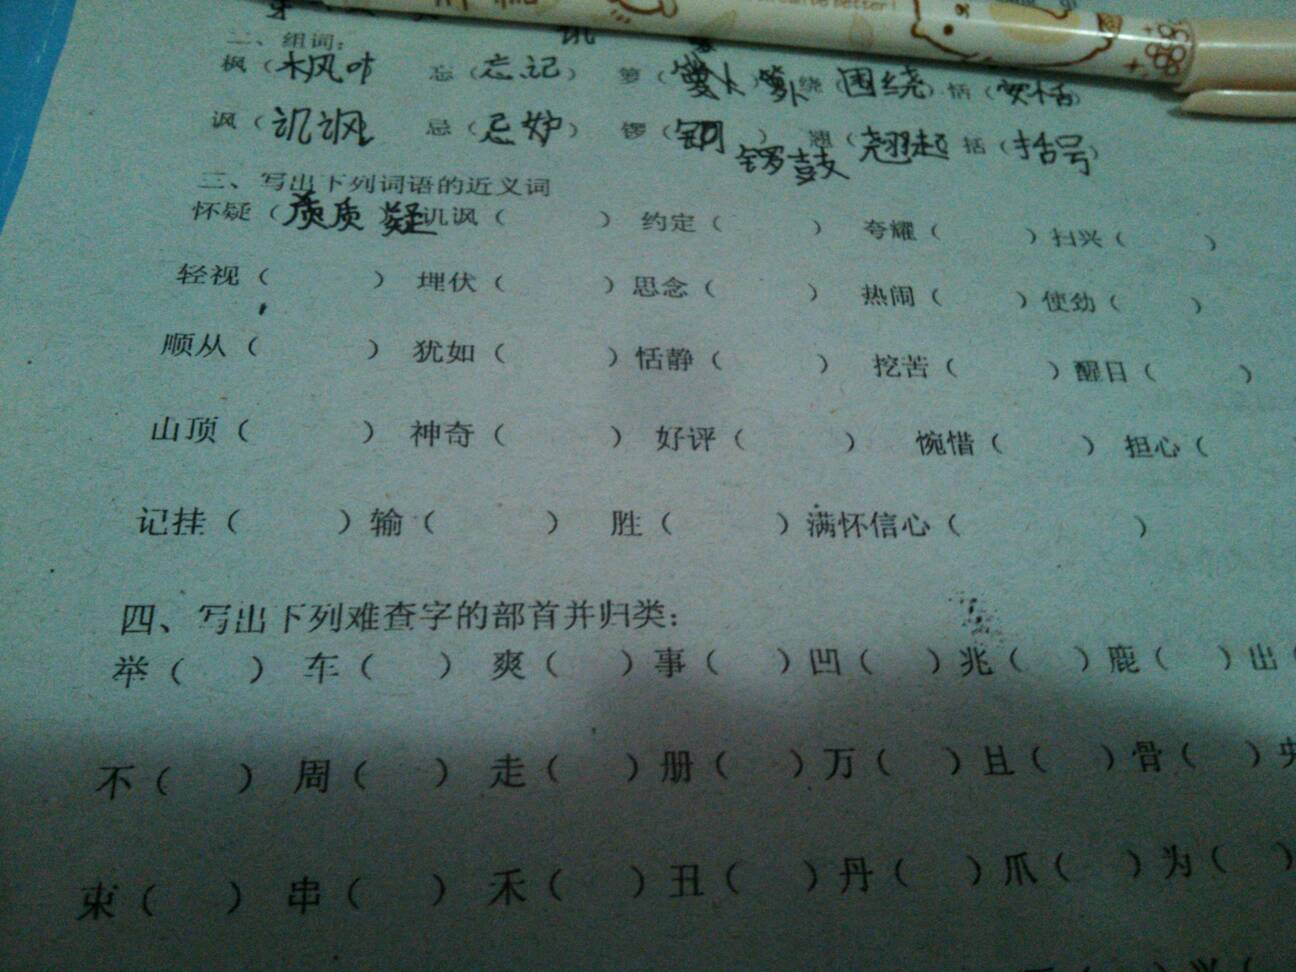 二、组词:
枫（枫叶） 忘（忘记） 萝（萝卜）萝卜 绕（围绕） 恬（安恬）
讽（讥讽） 忌（忌妒） 锣（铜） 锣鼓 翘（翘起） 括（括号）
三、写出下列词语的近义词
怀疑（质疑 讥讽（ ） 约定（ ） 夸耀（ ） 扫兴（ ）
轻视（ ） 埋伏（ ） 思念（ ） 热闹（ ） 使劲（ ）
顺从（ ） 犹如（ ） 恬静（ ） 挖苦（ ） 醒目（ ）
山顶（ ） 神奇（ ） 好评（ ） 惋惜（ ） 担心（
记挂（ ） 输（ ） 胜（ ） 满怀信心（ ）
四、写出下列难查字的部首并归类：
举（ ） 车（ ） 爽（ ） 事（ ） 凹（ ） 兆（ ） 鹿（ ） 出（
不（ ） 周（ ） 走（ ） 册（ ） 万（ ） 且（ ） 骨（ ） 央
束（ ） 串（ ） 禾（ ） 丑（ ） 丹（ ） 爪（ ） 为（ ）